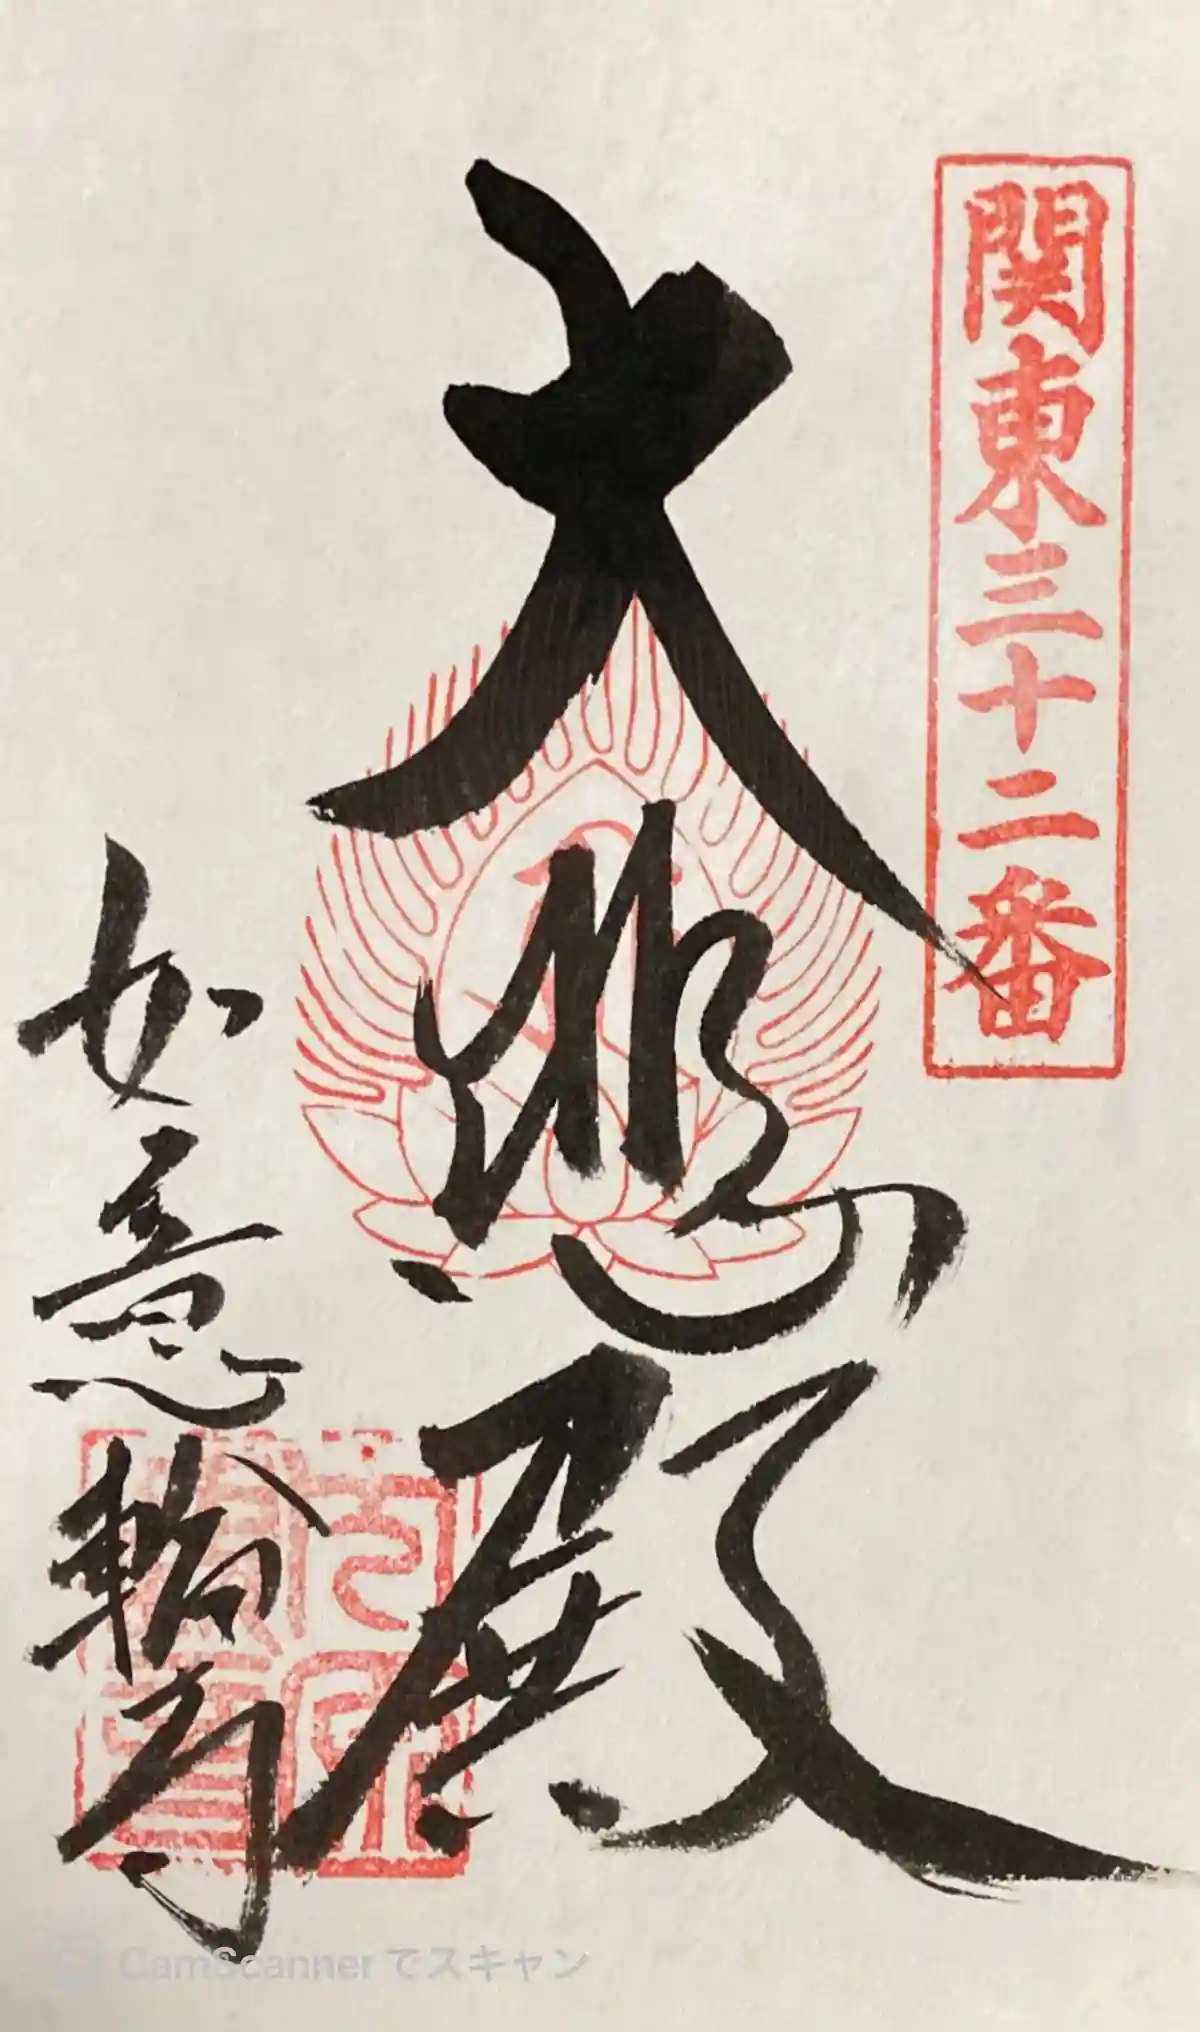 関東三十二番
大悲殿
如意輪寺
CamScanner でスキャン